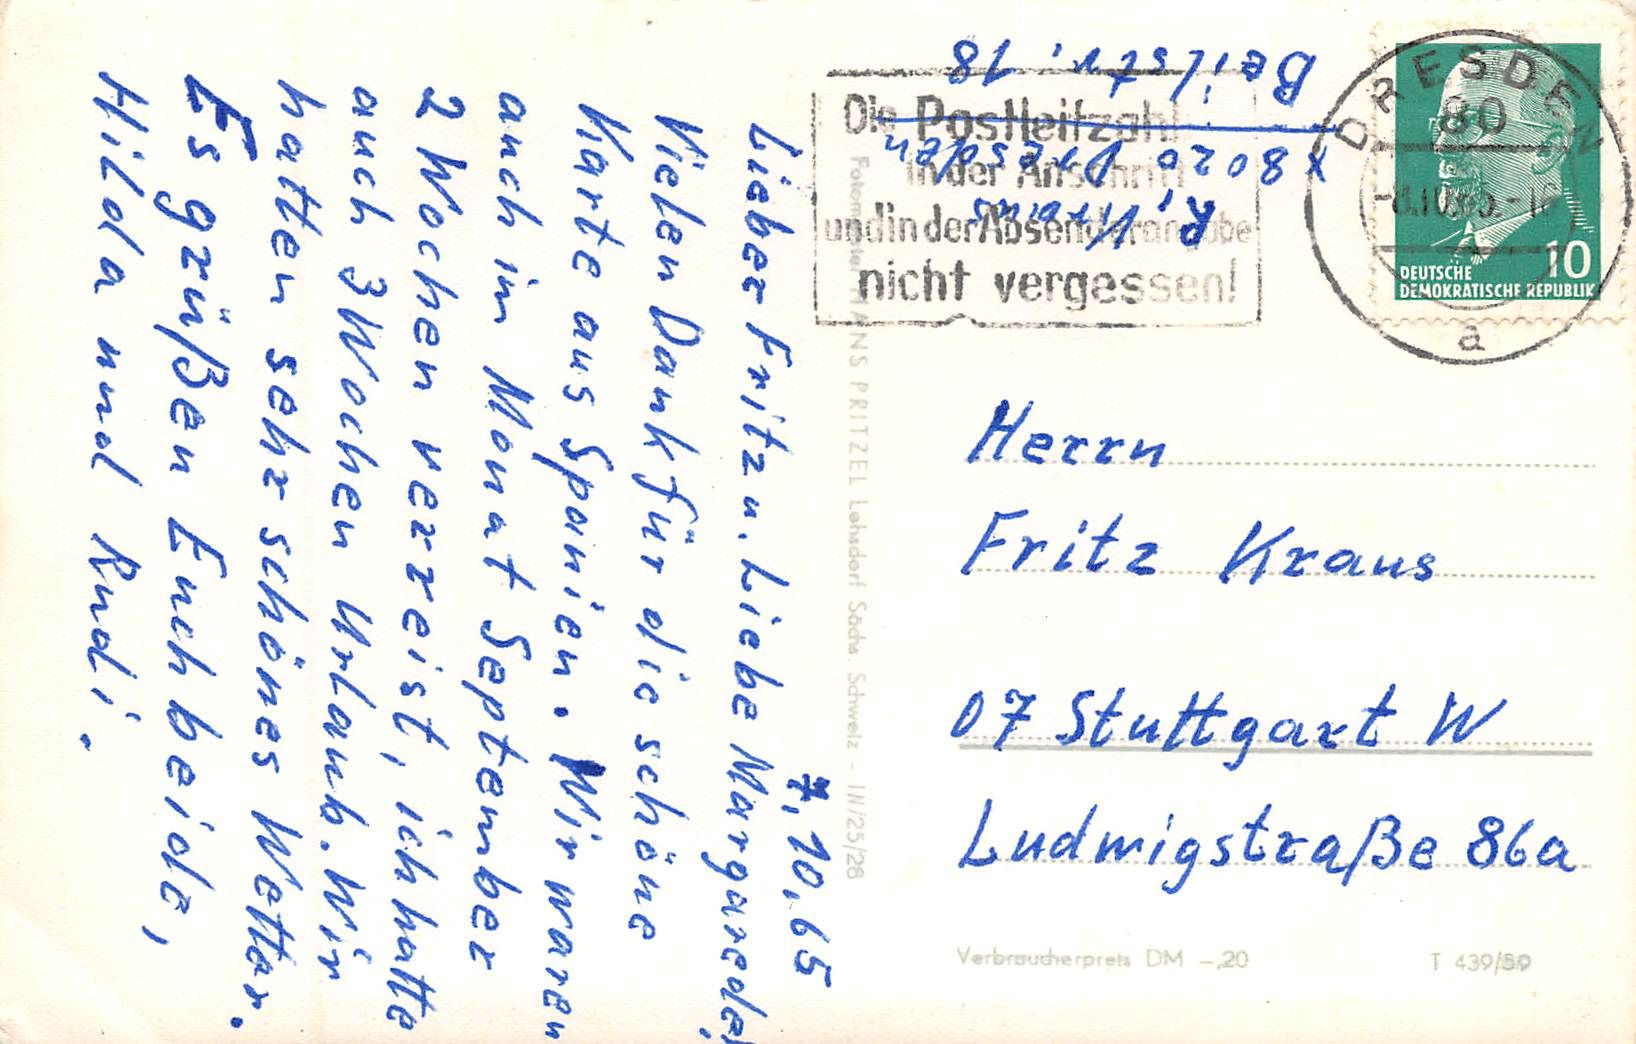 7.10.65
Lieber Fritz u. Liebe Margarede!
Vielen Dank für die schöne
Karte aus Spanien. Wir waren
auch im Monat September
2 Wochen verreist, ich hatte
auch 3 Wochen Urlaub. Wir
hatten sehr schönes Wetter.
Es grüßen Euch beide,
Hilda und Rudi.
R.
X 8020 Dresden
Beilstr. 18
Die Postleitzahl
in der Anschrift
und in der Absenderangabe
nicht vergessen!
DRESDEN
80
a
10
DEUTSCHE
DEMOKRATISCHE REPUBLIK
Herrn
Fritz Kraus
07 Stuttgart W
Ludwigstraße 86a
Verbraucherpreis DM -,20
T 439/59
HANS PRITZEL Lohsdorf Sächs. Schweiz - IN/25/28